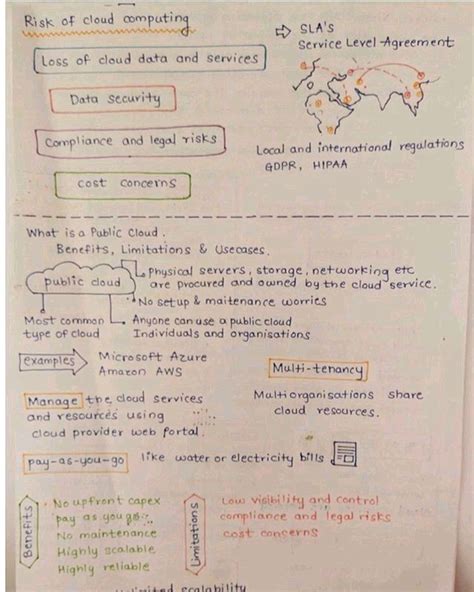 Risk of cloud computing
Loss of cloud data and services
Data Security
Compliance and legal risks
cost concerns
⇨ SLA's
Service Level-Agreement
Local and international regulations
GDPR, HIPAA
What is a Public Cloud.
Benefits, Limitations & Usecases.
public cloud
physical servers, storage, networking etc
are procured and owned by the cloud service.
No setup & maitenence worries
Most common
type of cloud
Anyone can use a public cloud
Individuals and organisations
examples
Microsoft Azure
Amazon AWS
Multi-tenancy
Multi organisations share
cloud resources.
Manage the cloud services
and resources using
cloud provider web portal.
pay-as-you-go like water or electricity bills
Benefits
No upfront capex
pay as you go
No maintenance
Highly scalable
Highly reliable
Limitations
Low visibility and control
compliance and legal risks
cost concerns
scalability